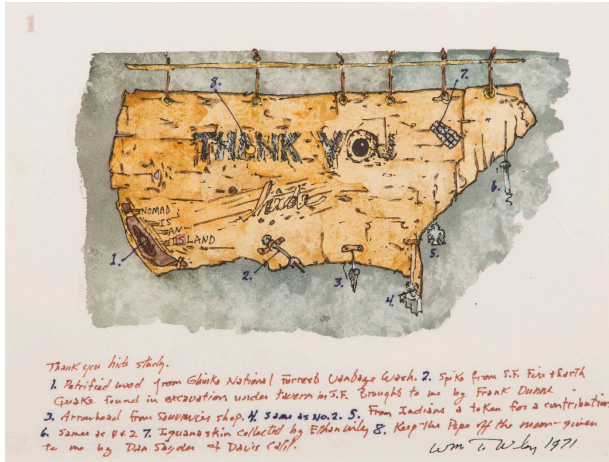 1
8.
7.
THANK YOU
hide
6.
NOMAD
IS
AN
ISLAND
5.
1.
2.
3.
4.
Thank you hide study.
1. Petrified wood from Ginko National Forrest Vantage Wash. 2. Spike from S.F. Fire + Earth
Quake found in excavation under tavern in S.F. brought to me by Frank
3. Arrowhead from shop. 4. Same as No. 2. 5. From Indians a token for a contribution
6. Same as 7. Iguana skin collected by Ethan Wiley 8. Keep the Pope off the moon - given
to me by Dan Snyder of Davis Calif.
Wm T. Wiley 1971